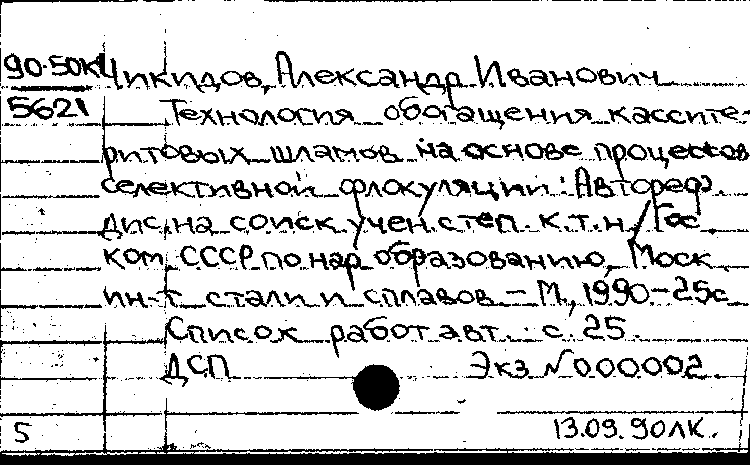 90-50к Чикидов, Александр Иванович
5621 Технология обогащения кассите-
ритовых шламов на основе процессов
селективной флокуляции: Автореф.
дис. на соиск. учен. степ. к.т.н. / Гос.
ком. СССР по нар. образованию, Моск.
ин-т стали и сплавов. - М., 1990 - 25с.
Список работ авт.: с. 25.
ДСП Экз N 000002.
5 13.09.90 ЛК.